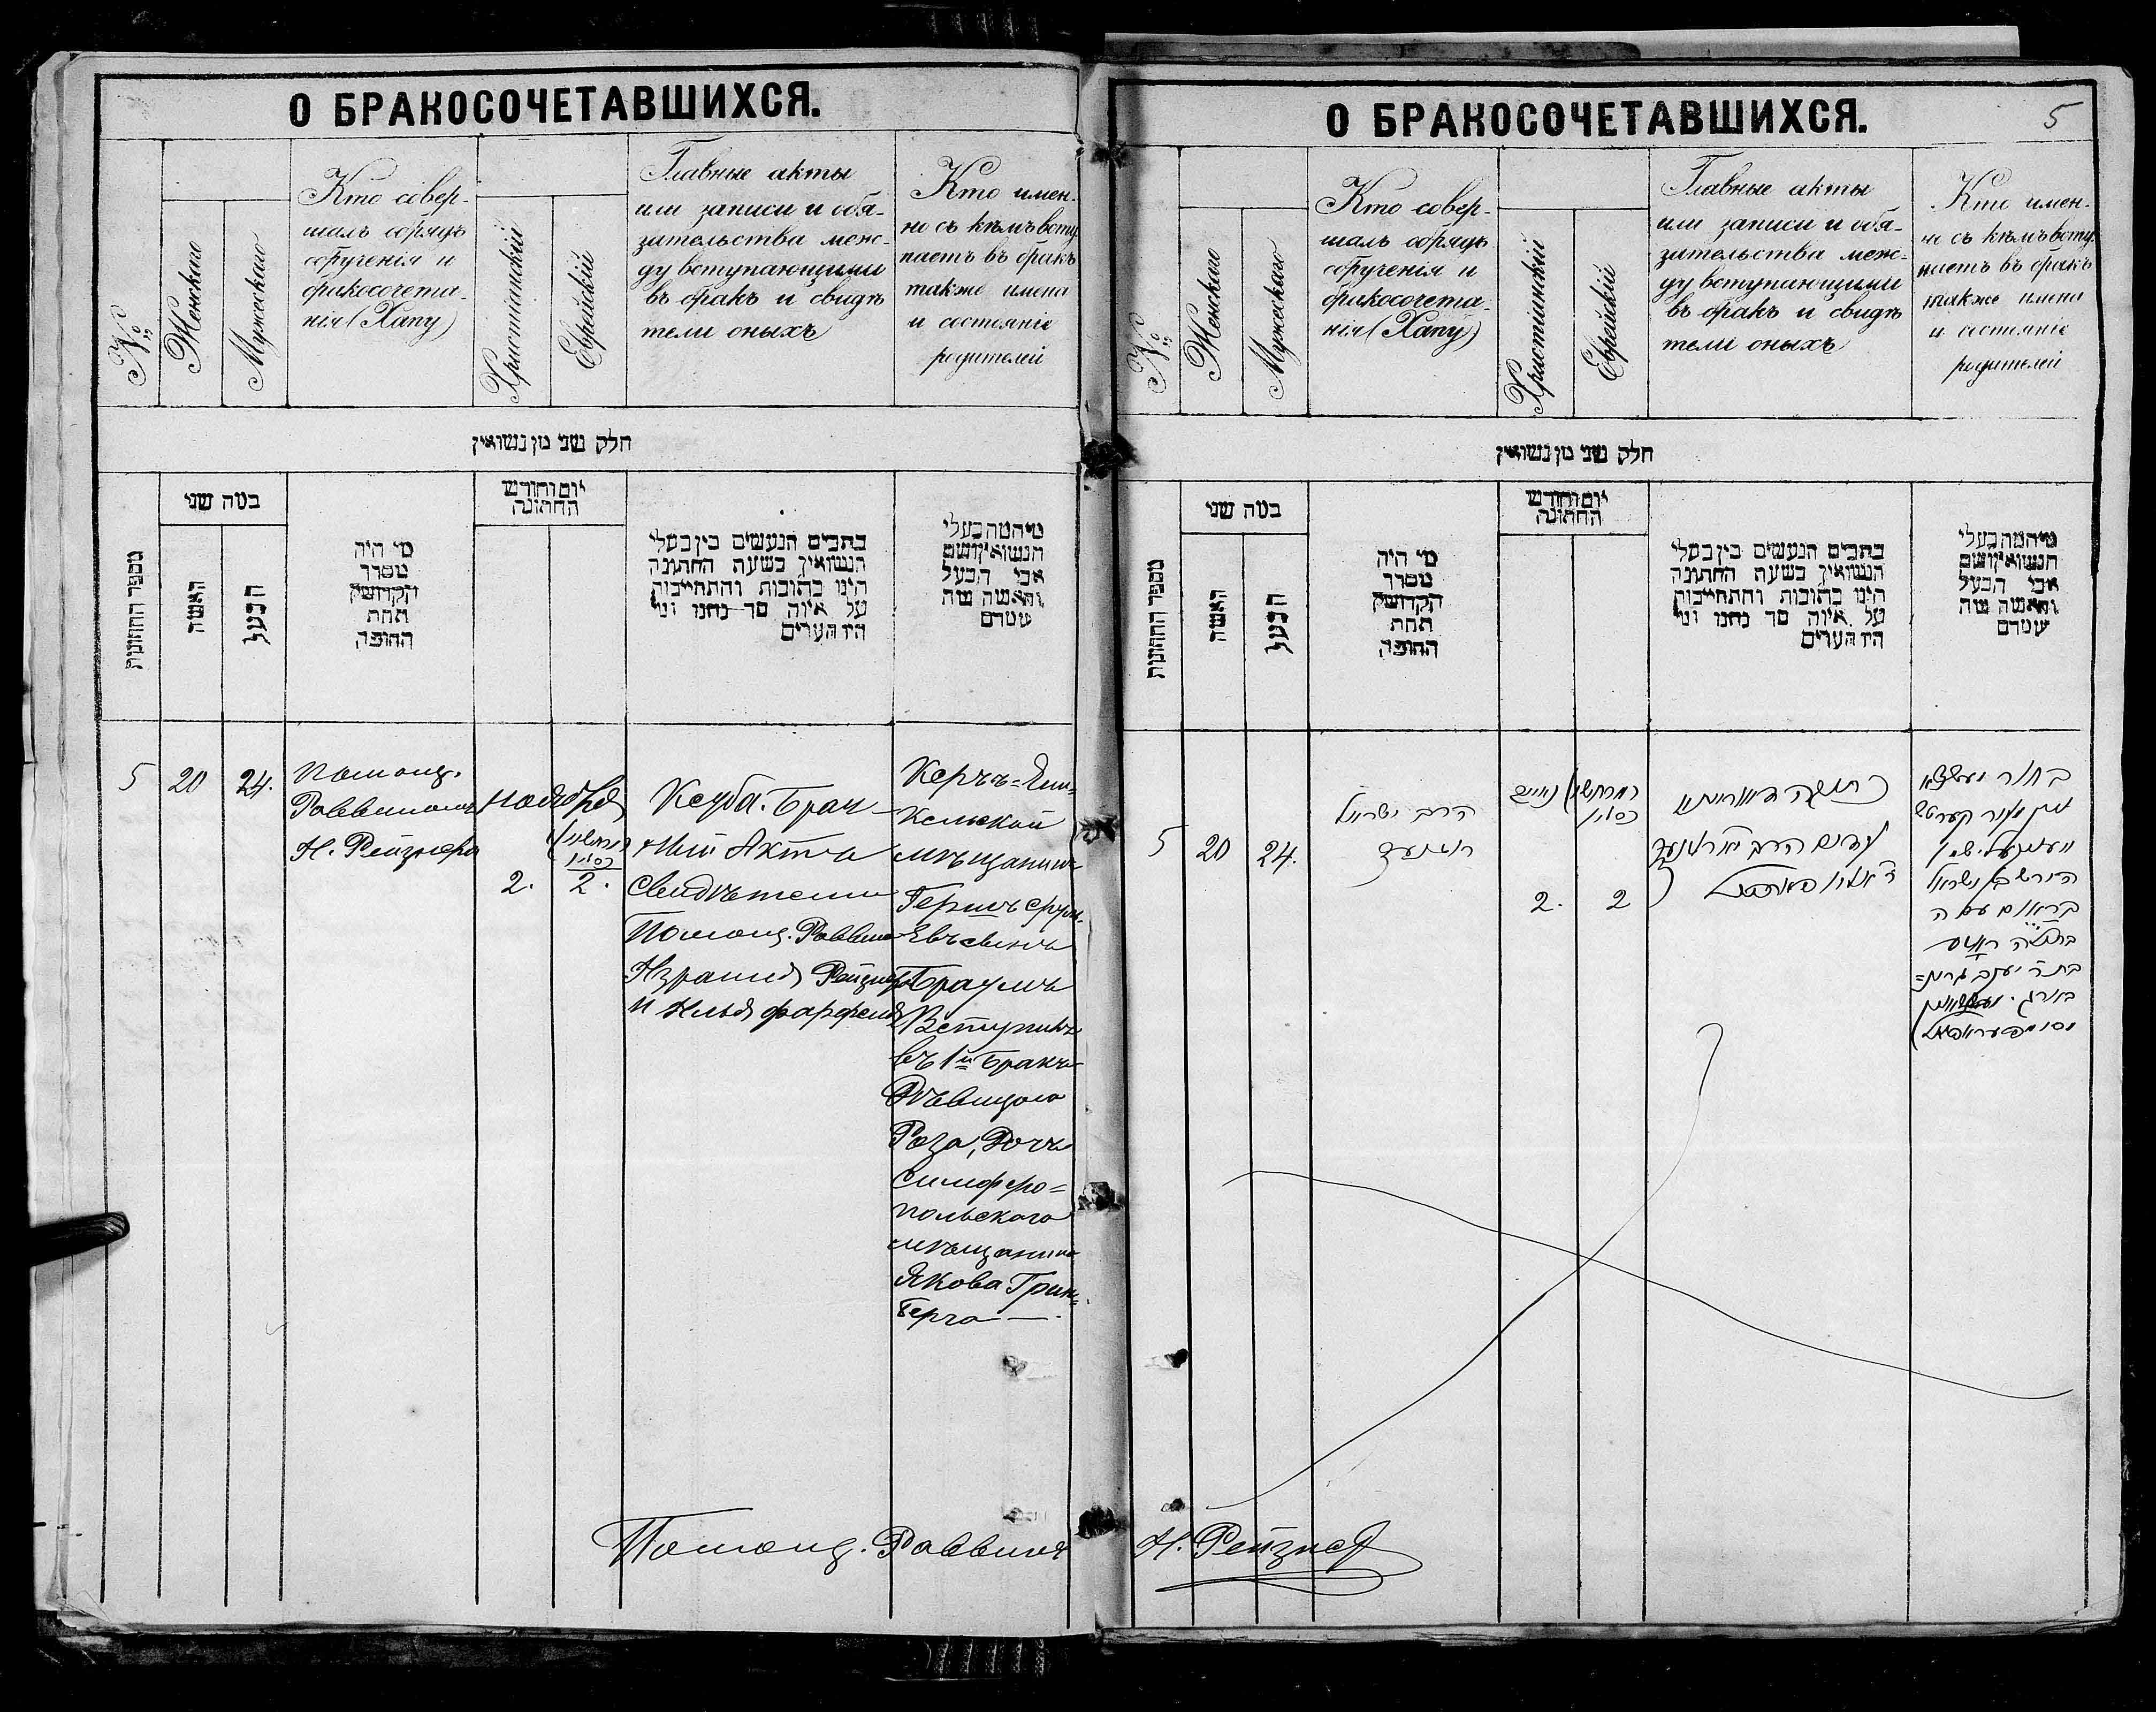 О БРАКОСОЧЕТАВШИХСЯ.
№
Женскаго
Мужескаго
Кто совер-
шалъ обрядъ
обрученія и
бракосочета-
нія (Хапу)
Христіанскій
Еврейскій
Главные акты
или записи и обя-
зательства меж-
ду вступающими
въ бракъ и свидѣ
тели оныхъ
Кто имен-
но съ кѣмъ всту
паетъ въ бракъ
также имена
и состояніе
родителей
חלק שני מן נשואין
מספר החתונות
כמה שני
האשה
הבעל
מי היה
מסדר
הקדושין
תחת
החופה
יום וחודש
החתונה
כתבים הנעשים בין בעלי
הנשואין בשעת החתונה
היינו כתובות והתחייבות
על איזה סך נתנו ומי
היו העדים
מי המה בעלי
הנשואין ושם
אבי הבעל
והאשה מה
שמדם
5
20
24.
Помощ.
Раввина
И. Рейзнеръ
Ноября
2.
2.
Кетуба. Брач-
ный Актъ
Свидѣтели
Помощ. Раввина
Израиль Рейзнеръ
и Илья
Керчъ-Ени-
кельский
мѣщанинъ
Гершъ Срул-
Евъ сынъ
Браунъ
Вступилъ
въ 1й Бракъ
съ Дѣвицою
Роза, Дочь
Симферо=
польского
мѣщанина
Якова Грин=
берга —.
Помощ. Раввина
О БРАКОСОЧЕТАВШИХСЯ.
5
№
Женскаго
Мужескаго
Кто совер-
шалъ обрядъ
обрученія и
бракосочета-
нія (Хапу)
Христіанскій
Еврейскій
Главные акты
или записи и обя-
зательства меж-
ду вступающими
въ бракъ и свидѣ
тели оныхъ
Кто имен-
но съ кѣмъ всту
паетъ въ бракъ
также имена
и состояніе
родителей
חלק שני מן נשואין
מספר החתונות
כמה שני
האשה
הבעל
מי היה
מסדר
הקדושין
תחת
החופה
יום וחודש
החתונה
כתבים הנעשים בין בעלי
הנשואין בשעת החתונה
היינו כתובות והתחייבות
על איזה סך נתנו ומי
היו העדים
מי המה בעלי
הנשואין ושם
אבי הבעל
והאשה מה
שמדם
5
20
24.
הרב ישראל
2.
2
כתובה דאורייתא
עדים הרב
בחור
הירש בן ישראל
בראוין עם ה
בתולה ראזע
בת ר יעקב גרינ=
בערג
И. Рейзнеръ